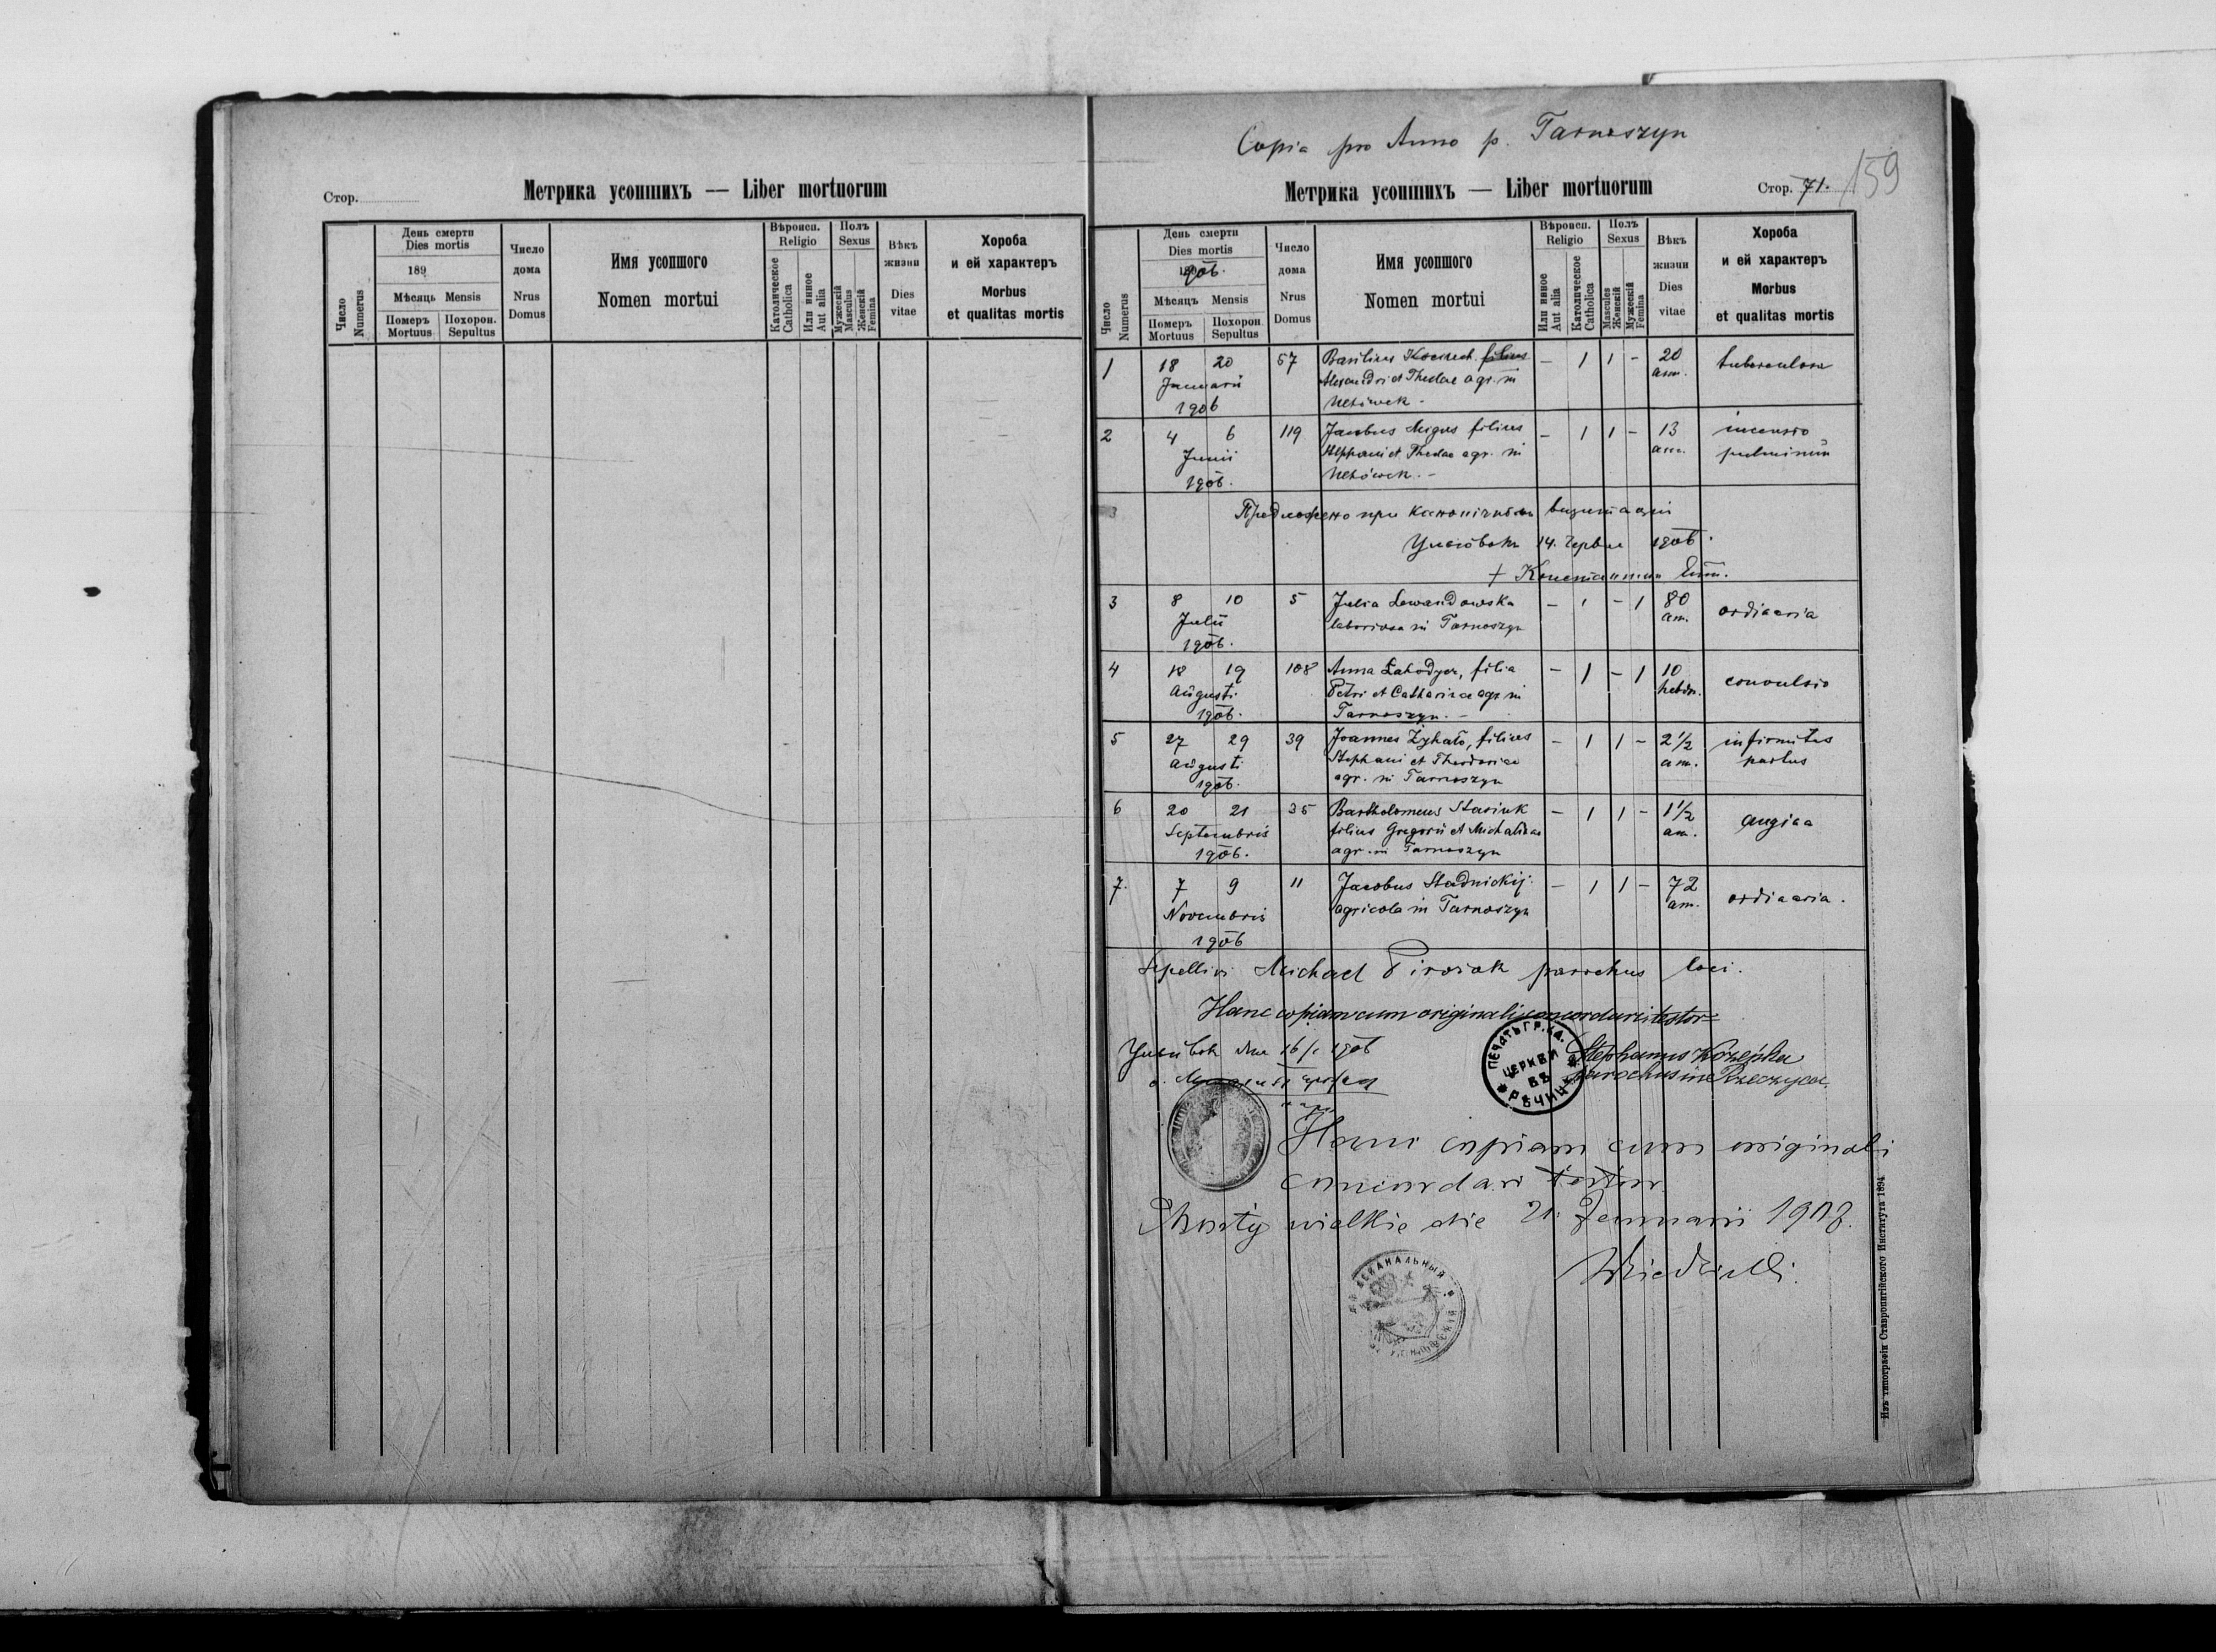 Стор.
Метрика усопшихъ — Liber mortuorum
Число
Numerus
День смерти
Dies mortis
189
Мѣсяць Mensis
Померъ
Mortuus
Похорон.
Sepultus
Число
дома
Nrus
Domus
Имя усопшого
Nomen mortui
Вѣроисп.
Religio
Католическое
Catholica
Или инное
Aut alia
Полъ
Sexus
Мужескій
Masculus
Женскій
Femina
Вѣкъ
жизни
Dies
vitae
Хороба
и ей характеръ
Morbus
et qualitas mortis
Copia pro Anno p. Tarnoszyn
Метрика усопшихъ — Liber mortuorum
Стор. 71.
159
Число
Numerus
День смерти
Dies mortis
1906.
Мѣсяцъ Mensis
Померъ
Mortuus
Похорон
Sepultus
Число
дома
Nrus
Domus
Имя усопшого
Nomen mortui
Вѣроисп.
Religio
Или инное
Aut alia
Католическое
Catholica
Полъ
Sexus
Mascules
Женскій
Мужескій
Femina
Вѣкъ
жизни
Dies
vitae
Хороба
и ей характеръ
Morbus
et qualitas mortis
1 18 20 57 Basilius filius — 1 1 - 20 tuberculosa
Januarii Alexandri et Theclae agr. in ann.
1906
2 4 6 119 Jacobus Migus filius — 1 1 - 13 incensio
Junii Stephani et Theclae agr. in ann. pulminum
1906.
3 Предложено при каноничной визитаціи
14. Червня 1906.
+ Константин Еп.
3 8 10 5 Julia Lewandowska — 1 - 1 80 ordinaria
Julii laboriosa in Tarnoszyn an.
1906.
4 18 19 108 Anna Łahodyn, filia — 1 - 1 10 convulsio
Augusti Petri et Catharinae agr in hebdm.
1906. Tarnoszyn. -
5 27 29 39 Joannes Żykało, filius — 1 1 - 2 1/2 infirmitas
Augusti Stephani et Theodoriae ann. partus
1906. agr. in Tarnoszyn
6 20 21 35 Bartholomeus Stasiuk — 1 1 - 1 1/2 angina
Septembris filius Gregorii et Michalinae an.
1906. agr. in Tarnoszyn
7. 7 9 11 Jacobus Stadnickij — 1 1 - 72 ordinaria.
Novembris agricola in Tarnoszyn an.
1906
Sepellivi Michael Pirożak parochus loci.
Hanc copiam cum originali concordare testor
16/1 1906
Stephanus Kozejka
parochus in Rzeczyca.
ПЕЧАТЬ ГР. КА.
ЦЕРКВИ
ВЪ
РѢЧИЦѢ
Hanc copiam cum originali
concordari testor
Mosty wielkie die 21. Januarii 1907.
Изъ типографіи Ставропигійского Института 1894